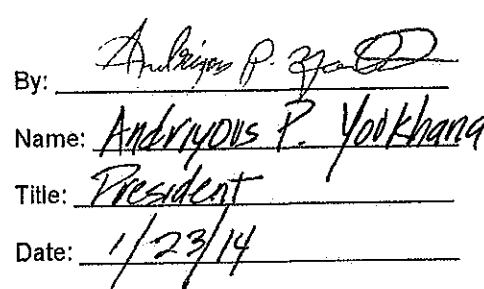 By: Andriyous P. Yookhana
Name: Andriyous P. Yookhana
Title: President
Date: 1/23/14